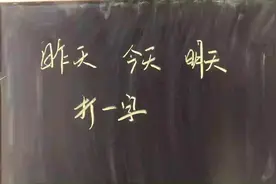 昨天 今天 明天
打一字